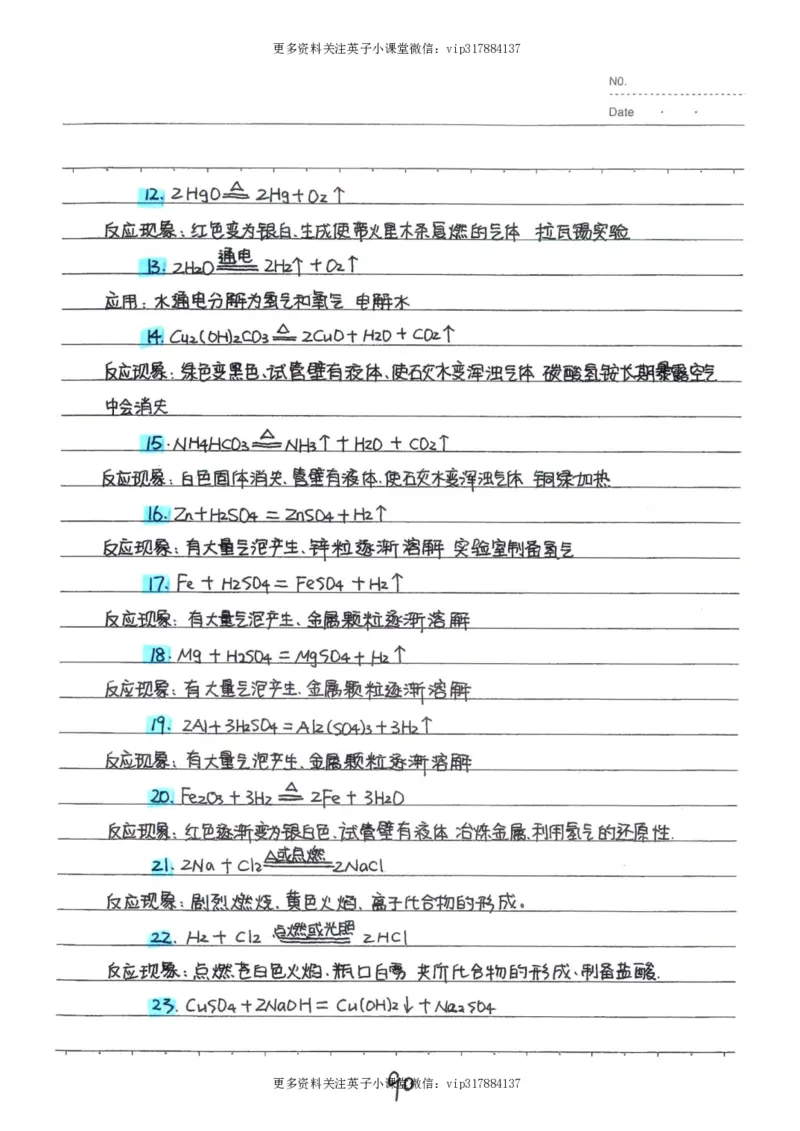 更多资料关注英子小课堂微信：vip317884137
NO.
Date
12. 2HgO △═ 2Hg+O₂↑
反应现象：红色变为银白、生成使带火星木条复燃的气体 拉瓦锡实验
13. 2H₂O 通电═ 2H₂↑+O₂↑
应用：水通电分解为氢气和氧气 电解水
14. Cu₂(OH)₂CO₃ △═ 2CuO+H₂O+CO₂↑
反应现象：绿色变黑色、试管壁有液体、使石灰水变浑浊气体 碳酸氢铵长期暴露空气
中会消失
15. NH₄HCO₃ △═ NH₃↑+H₂O+CO₂↑
反应现象：白色固体消失、管壁有液体、使石灰水变浑浊气体 铜绿加热
16. Zn+H₂SO₄=ZnSO₄+H₂↑
反应现象：有大量气泡产生、锌粒逐渐溶解 实验室制备氢气
17. Fe+H₂SO₄=FeSO₄+H₂↑
反应现象：有大量气泡产生、金属颗粒逐渐溶解
18. Mg+H₂SO₄=MgSO₄+H₂↑
反应现象：有大量气泡产生、金属颗粒逐渐溶解
19. 2Al+3H₂SO₄=Al₂(SO₄)₃+3H₂↑
反应现象：有大量气泡产生、金属颗粒逐渐溶解
20. Fe₂O₃+3H₂ △═ 2Fe+3H₂O
反应现象：红色逐渐变为银白色、试管壁有液体 冶炼金属、利用氢气的还原性.
21. 2Na+Cl₂ △或点燃═ 2NaCl
反应现象：剧烈燃烧、黄色火焰、离子化合物的形成。
22. H₂+Cl₂ 点燃或光照═ 2HCl
反应现象：点燃苍白色火焰、瓶口白雾 共价化合物的形成、制备盐酸.
23. CuSO₄+2NaOH=Cu(OH)₂↓+Na₂SO₄
90
更多资料关注英子小课堂微信：vip317884137